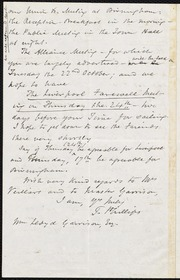 you until the Meeting at Birmingham:
the Reception-Breakfast in the morning
the Public Meeting in the Town Hall
at night.
The Alliance Meeting - for which
you are largely advertised -
Tuesday the 22nd October, and we
hope to have
The Liverpool Farewell Meet-
ing on Thursday the 24th -
days before your time for sailing.
I hope to get down to see the friends
there very shortly
Say if Thursday (24th) be agreeable for Liverpool
and Thursday, 17th be agreeable for
Birmingham.
With very kind regards to Mrs
Villard and to Master Garrison,
I am, Yrs truly
T. Phillips
Wm Lloyd Garrison Esq.